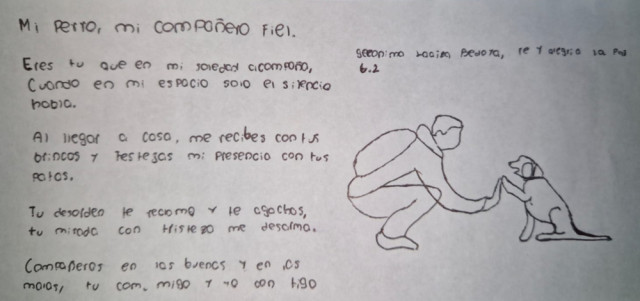 Mi perro, mi compañero fiel.
Eres tu que en mi soledad acompaña,
Cuando en mi espacio solo el silencio
habla.
Al llegar a casa, me recibes con tus
brincos y festejas mi presencia con tus
patas.
Tu desorden te reclamo y te agachas,
tu mirada con tristeza me desarma.
Compañeros en las buenas y en los
malas, tu con migo y yo con tigo
Geronimo Bedoya, fe y alegria la
6.2